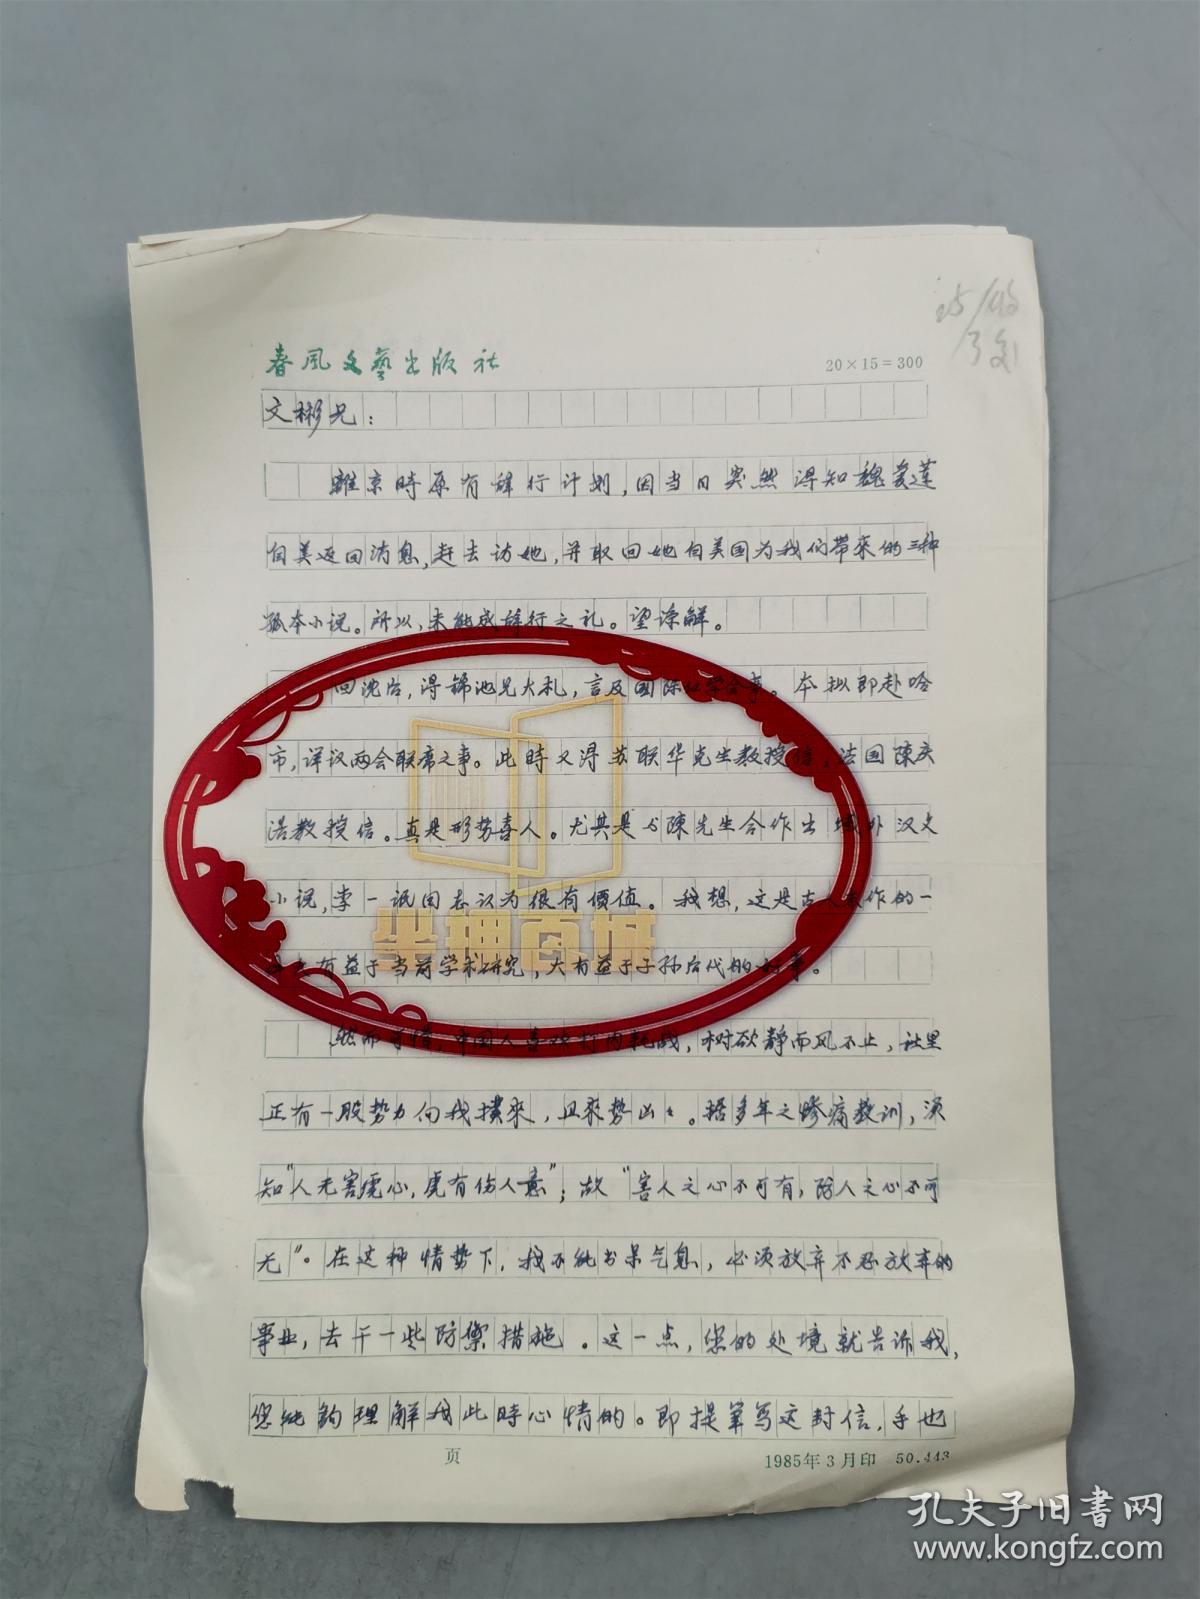 春风文艺出版社
20×15=300
文彬兄：
離京時原有辞行计划，因当日突然得知魏爱莲
自美返回消息，赶去访她，并取回她自美国为我们带来的三种
孤本小说。所以，未能成辞行之礼。望谅解。
回沈后，得锦池兄大札，言及国际红学会事。本拟即赴哈
市，详议两会联席之事。此時又得苏联华克生教授信，法国陳庆
浩教授信。真是形势喜人。尤其是与陳先生合作出域外汉文
小说，李一氓同志认为很有價值。我想，这是古人未作的一
有益于当前学术研究，大有益于子孙后代的好事。
然而可惜，中国人喜欢打内耗战，树欲静而风不止，社里
正有一股势力向我撲來，且来势凶凶。据多年之惨痛教训，须
知“人无害虎心，虎有伤人意”；故“害人之心不可有，防人之心不可
无”。在这种情势下，我不能书呆气息，必须放弃不忍放弃的
事业，去干一些防禦措施。这一点，您的处境就告诉我，
您能夠理解我此時心情的。即提筆写这封信，手也
页
1985年3月印 50.443
华坤商城
孔夫子旧书网
www.kongfz.com